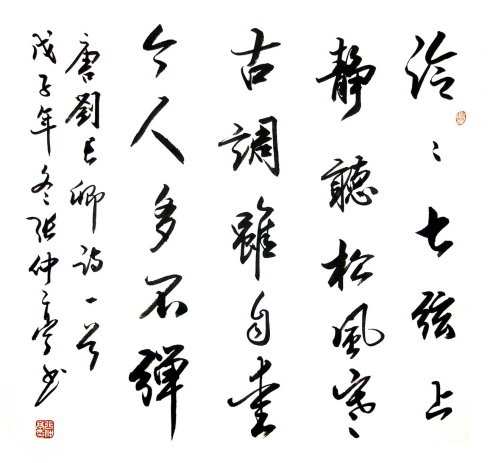 泠〻七弦上
靜聽松風寒
古調雖自愛
今人多不彈
唐劉長卿詩一首
戊子年冬張仲亭書